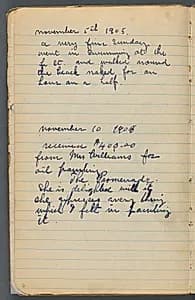 november 5th 1905
a very fine Sunday
went in swimming at the
and walked around
the beach naked for an
hour an a half.
november 10 1905
received $400.00
from Mrs Williams for
oil painting
The Promenade.
She is delighted with it
she expresses every thing
which I felt in painting
it